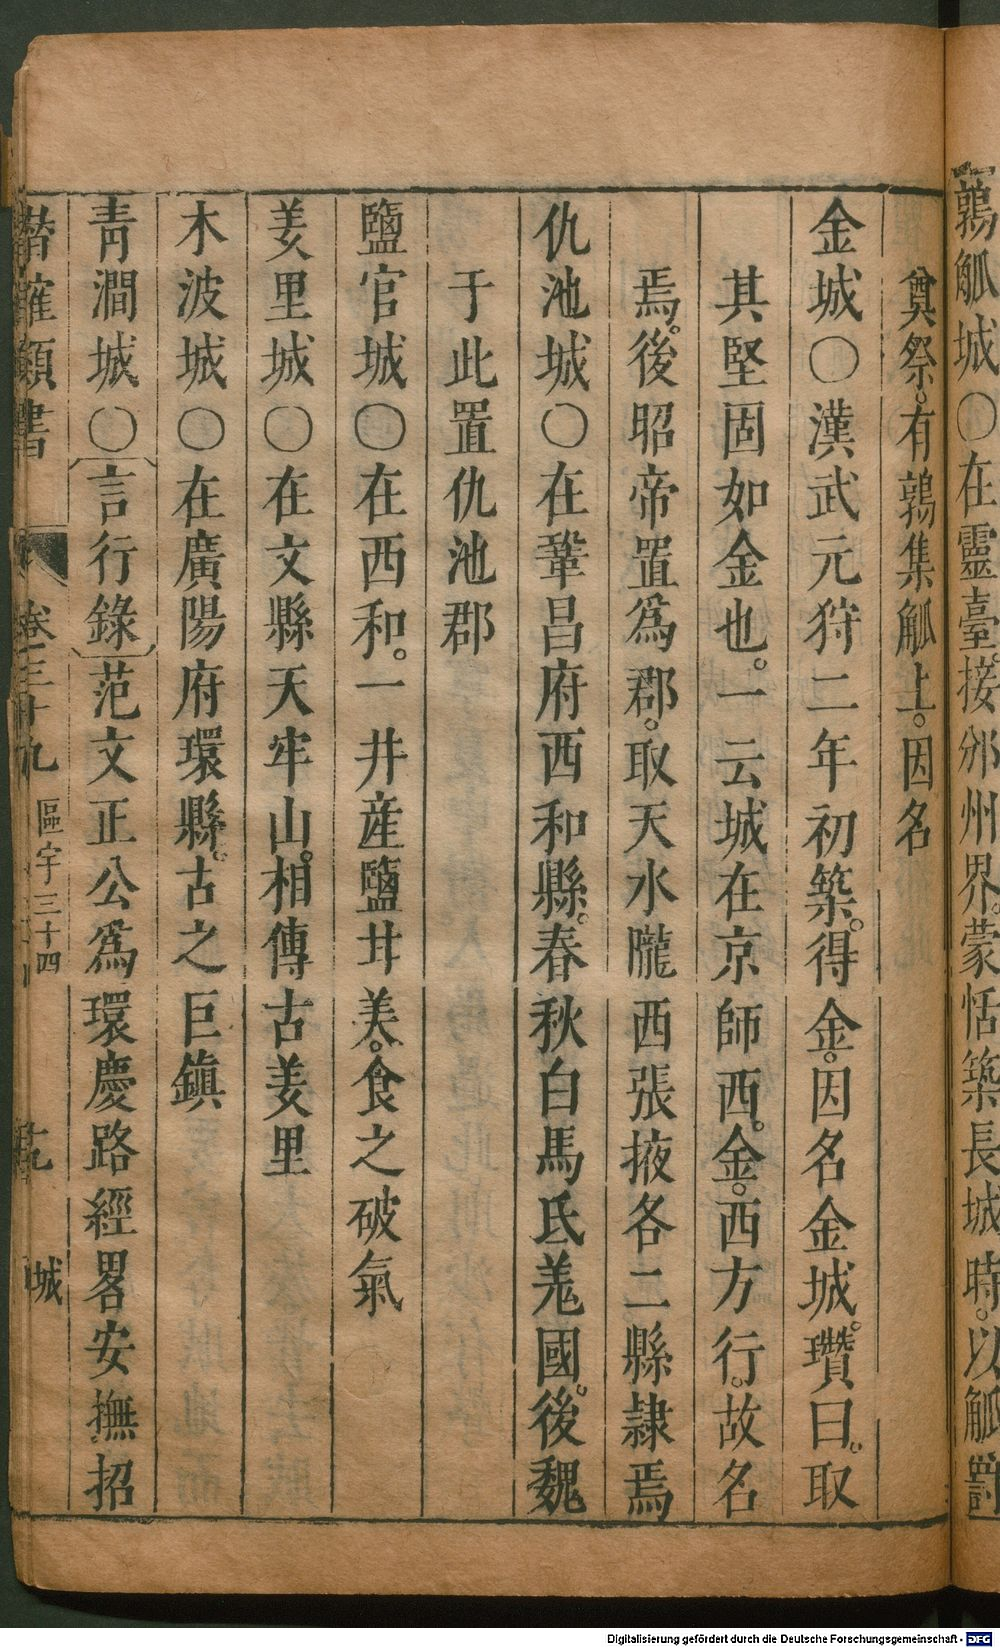 鶉觚城○在靈臺。接邠州界。蒙恬築長城時。以觚
奠祭。有鶉集觚上。因名
金城○漢武元狩二年初築。得金。因名金城。瓚曰。取
其堅固如金也。一云城在京師西。金。西方行。故名
焉。後昭帝置爲郡。取天水隴西張掖各二縣隷焉
仇池城○在鞏昌府西和縣。春秋白馬氐羗國。後魏
于此置仇池郡
鹽官城○在西和。一井産鹽甘美。食之破氣
姜里城○在文縣天牢山。相傳古姜里
木波城○在廣陽府環縣。古之巨鎭
青澗城○言行錄范文正公爲環慶路經畧安撫。招
潛確類書 卷三十九 區宇三十四 城
Digitalisierung gefördert durch die Deutsche Forschungsgemeinschaft - DFG